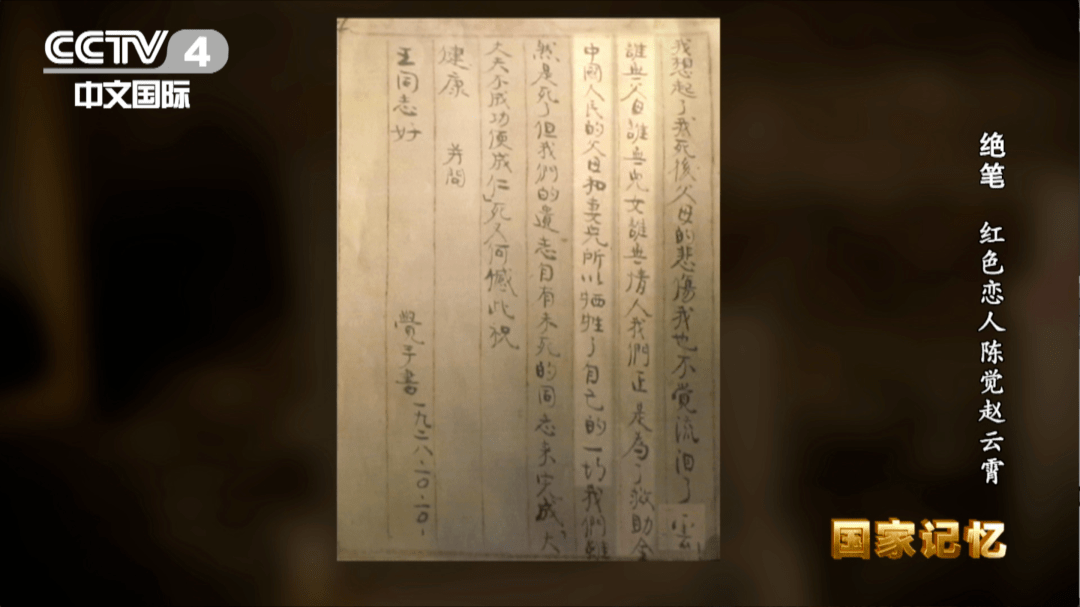 CCTV 4
中文国际
我想起了我死後父母的悲傷我也不覺流泪了雲
誰無父母誰無兒女誰無情人我們正是爲了救助全
中國人民的父母和妻兒所以牺牲了自己的一切我們雖
然是死了但我們的遺志自有未死的同志來完成、大
丈夫不成功便成仁」死又何憾此祝
健康 并問
王同志好
覺手書一九二八·一〇·一〇·
绝笔 红色恋人陈觉赵云霄
国家记忆